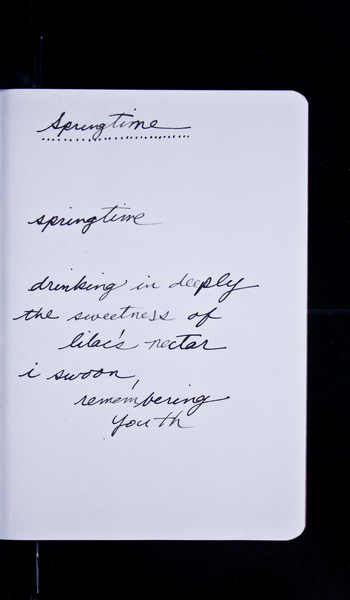 Springtime
springtime
drinking in deeply
the sweetness of
lilac's nectar
i swoon,
remembering
youth